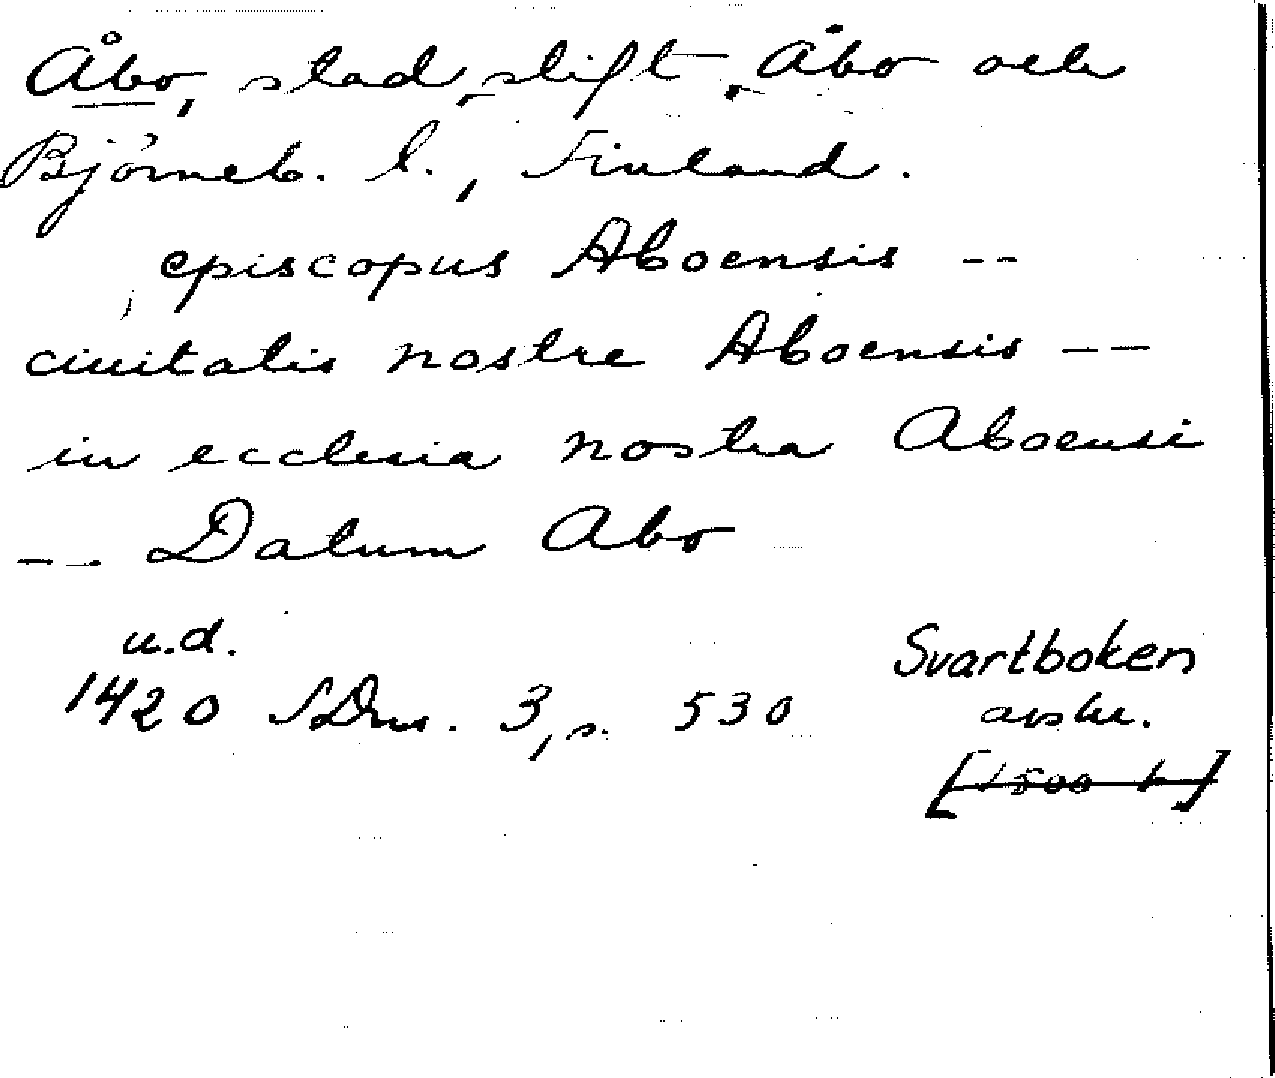 Åbo, stad, stift, Åbo och
Björneb. l., Finland.
episcopus Aboensis --
ciuitatis nostre Aboensis --
in ecclesia nostra Aboensi
-- Datum Abo
u.d.
1420 SDns. 3, s. 530
Svartboken
avskr.
[1500 t]